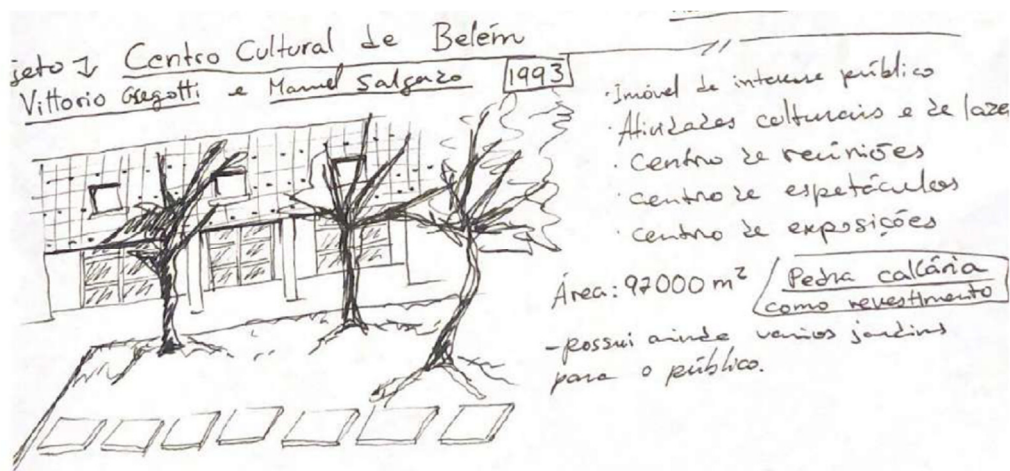 jeto 1 Centro Cultural de Belém
Vittorio Gregotti e Manuel Salgado 1993
·Imóvel de interesse público
·Atividades culturais e de laze
·centro de reúniões
·centro de espetáculos
·centro de exposições
Área: 97000 m²
Pedra calcária
como revestimento
-possui ainda varios jardins
para o público.